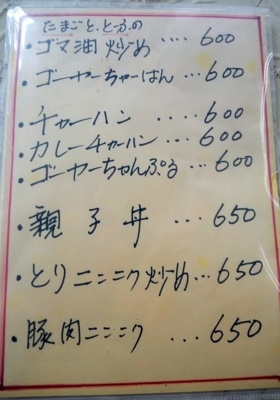 たまごと、とーふの
・ゴマ油炒め ‥‥ 600
・ゴーヤーちゃーはん ‥‥ 600
・チャーハン ‥‥‥ 600
・カレーチャーハン ‥‥ 600
・ゴーヤーちゃんぷる ‥‥ 600
・親子丼 ‥‥ 650
・とりニンニク炒め ‥‥ 650
・豚肉ニンニク ‥‥ 650